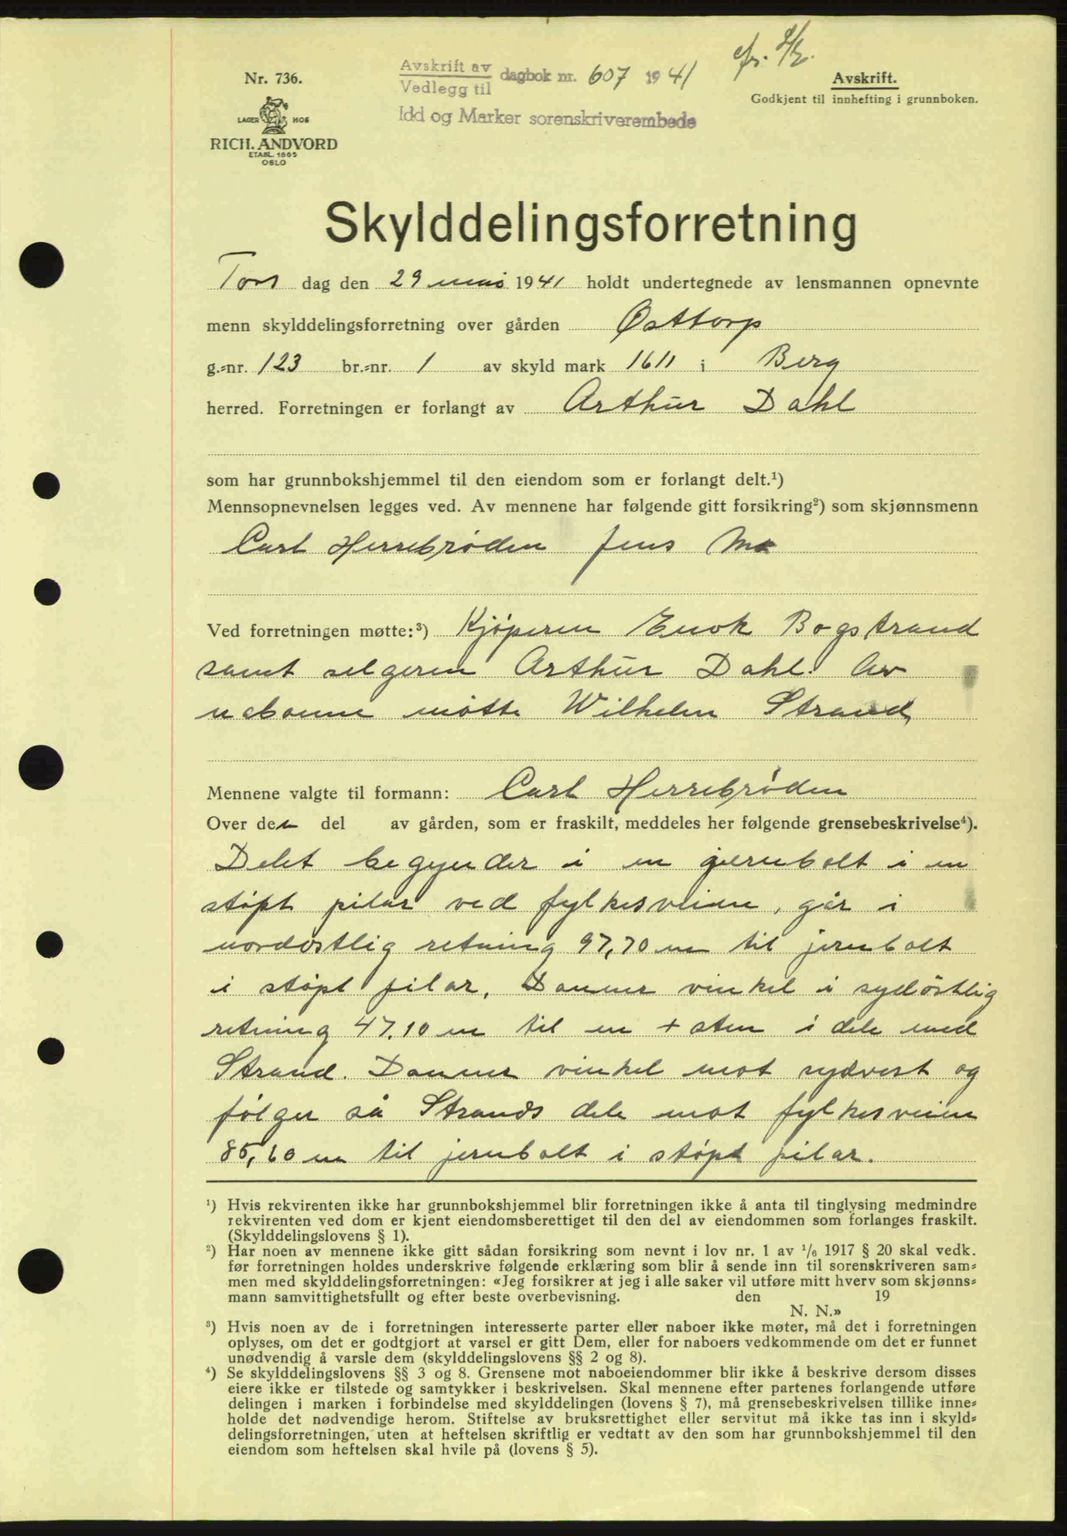 Nr. 736.
LAGER HOS
RICH. ANDVORD
ETABL. 1865
OSLO
Avskrift av
Vedlegg til
dagbok nr. 607 1941
Idd og Marker sorenskriverembede
Avskrift.
Godkjent til innhefting i grunnboken.
Skylddelingsforretning
Tors dag den 29 mai 1941 holdt undertegnede av lensmannen opnevnte
menn skylddelingsforretning over gården Østtorp
g.=nr. 123 br.=nr. 1 av skyld mark 1611 i Berg
herred. Forretningen er forlangt av Arthur Dahl
som har grunnbokshjemmel til den eiendom som er forlangt delt.¹)
Mennsopnevnelsen legges ved. Av mennene har følgende gitt forsikring²) som skjønnsmenn
Carl Herrebrøden Jens
Ved forretningen møtte:³) Kjøperen Enok Bogstrand
samt selgeren Arthur Dahl. Av
naboene møtte Wilhelm Strand,
Mennene valgte til formann: Carl Herrebrøden
Over den del av gården, som er fraskilt, meddeles her følgende grensebeskrivelse⁴).
Delet begynder i en jernbolt i en
støpt pilar ved fylkesveien, går i
nordöstlig retning 97,70 m til jernbolt
i støpt pilar, Danner vinkel i sydöstlig
retning 47,10 m til en + sten i dele med
Strand. Danner vinkel mot sydvest og
følger så Strands dele mot fylkesveien
85,60 m til jernbolt i støpt pilar.
¹) Hvis rekvirenten ikke har grunnbokshjemmel blir forretningen ikke å anta til tinglysing medmindre
rekvirenten ved dom er kjent eiendomsberettiget til den del av eiendommen som forlanges fraskilt.
(Skylddelingslovens § 1).
²) Har noen av mennene ikke gitt sådan forsikring som nevnt i lov nr. 1 av ¹/₆ 1917 § 20 skal vedk.
før forretningen holdes underskrive følgende erklæring som blir å sende inn til sorenskriveren sam=
men med skylddelingsforretningen: «Jeg forsikrer at jeg i alle saker vil utføre mitt hverv som skjønns=
mann samvittighetsfullt og efter beste overbevisning. den 19
N. N.»
³) Hvis noen av de i forretningen interesserte parter eller naboer ikke møter, må det i forretningen
oplyses, om det er godtgjort at varsel er gitt Dem, eller for naboers vedkommende om det er funnet
unødvendig å varsle dem (skylddelingslovens §§ 2 og 8).
⁴) Se skylddelingslovens §§ 3 og 8. Grensene mot naboeiendommer blir ikke å beskrive dersom disses
eiere ikke er tilstede og samtykker i beskrivelsen. Skal mennene efter partenes forlangende utføre
delingen i marken i forbindelse med skylddelingen (lovens § 7), må grensebeskrivelsen tillike inne=
holde det nødvendige herom. Stiftelse av bruksrettighet eller servitut må ikke tas inn i skyld=
delingsforretningen, uten at heftelsen skriftlig er vedtatt av den som har grunnbokshjemmel til den
eiendom som heftelsen skal hvile på (lovens § 5).